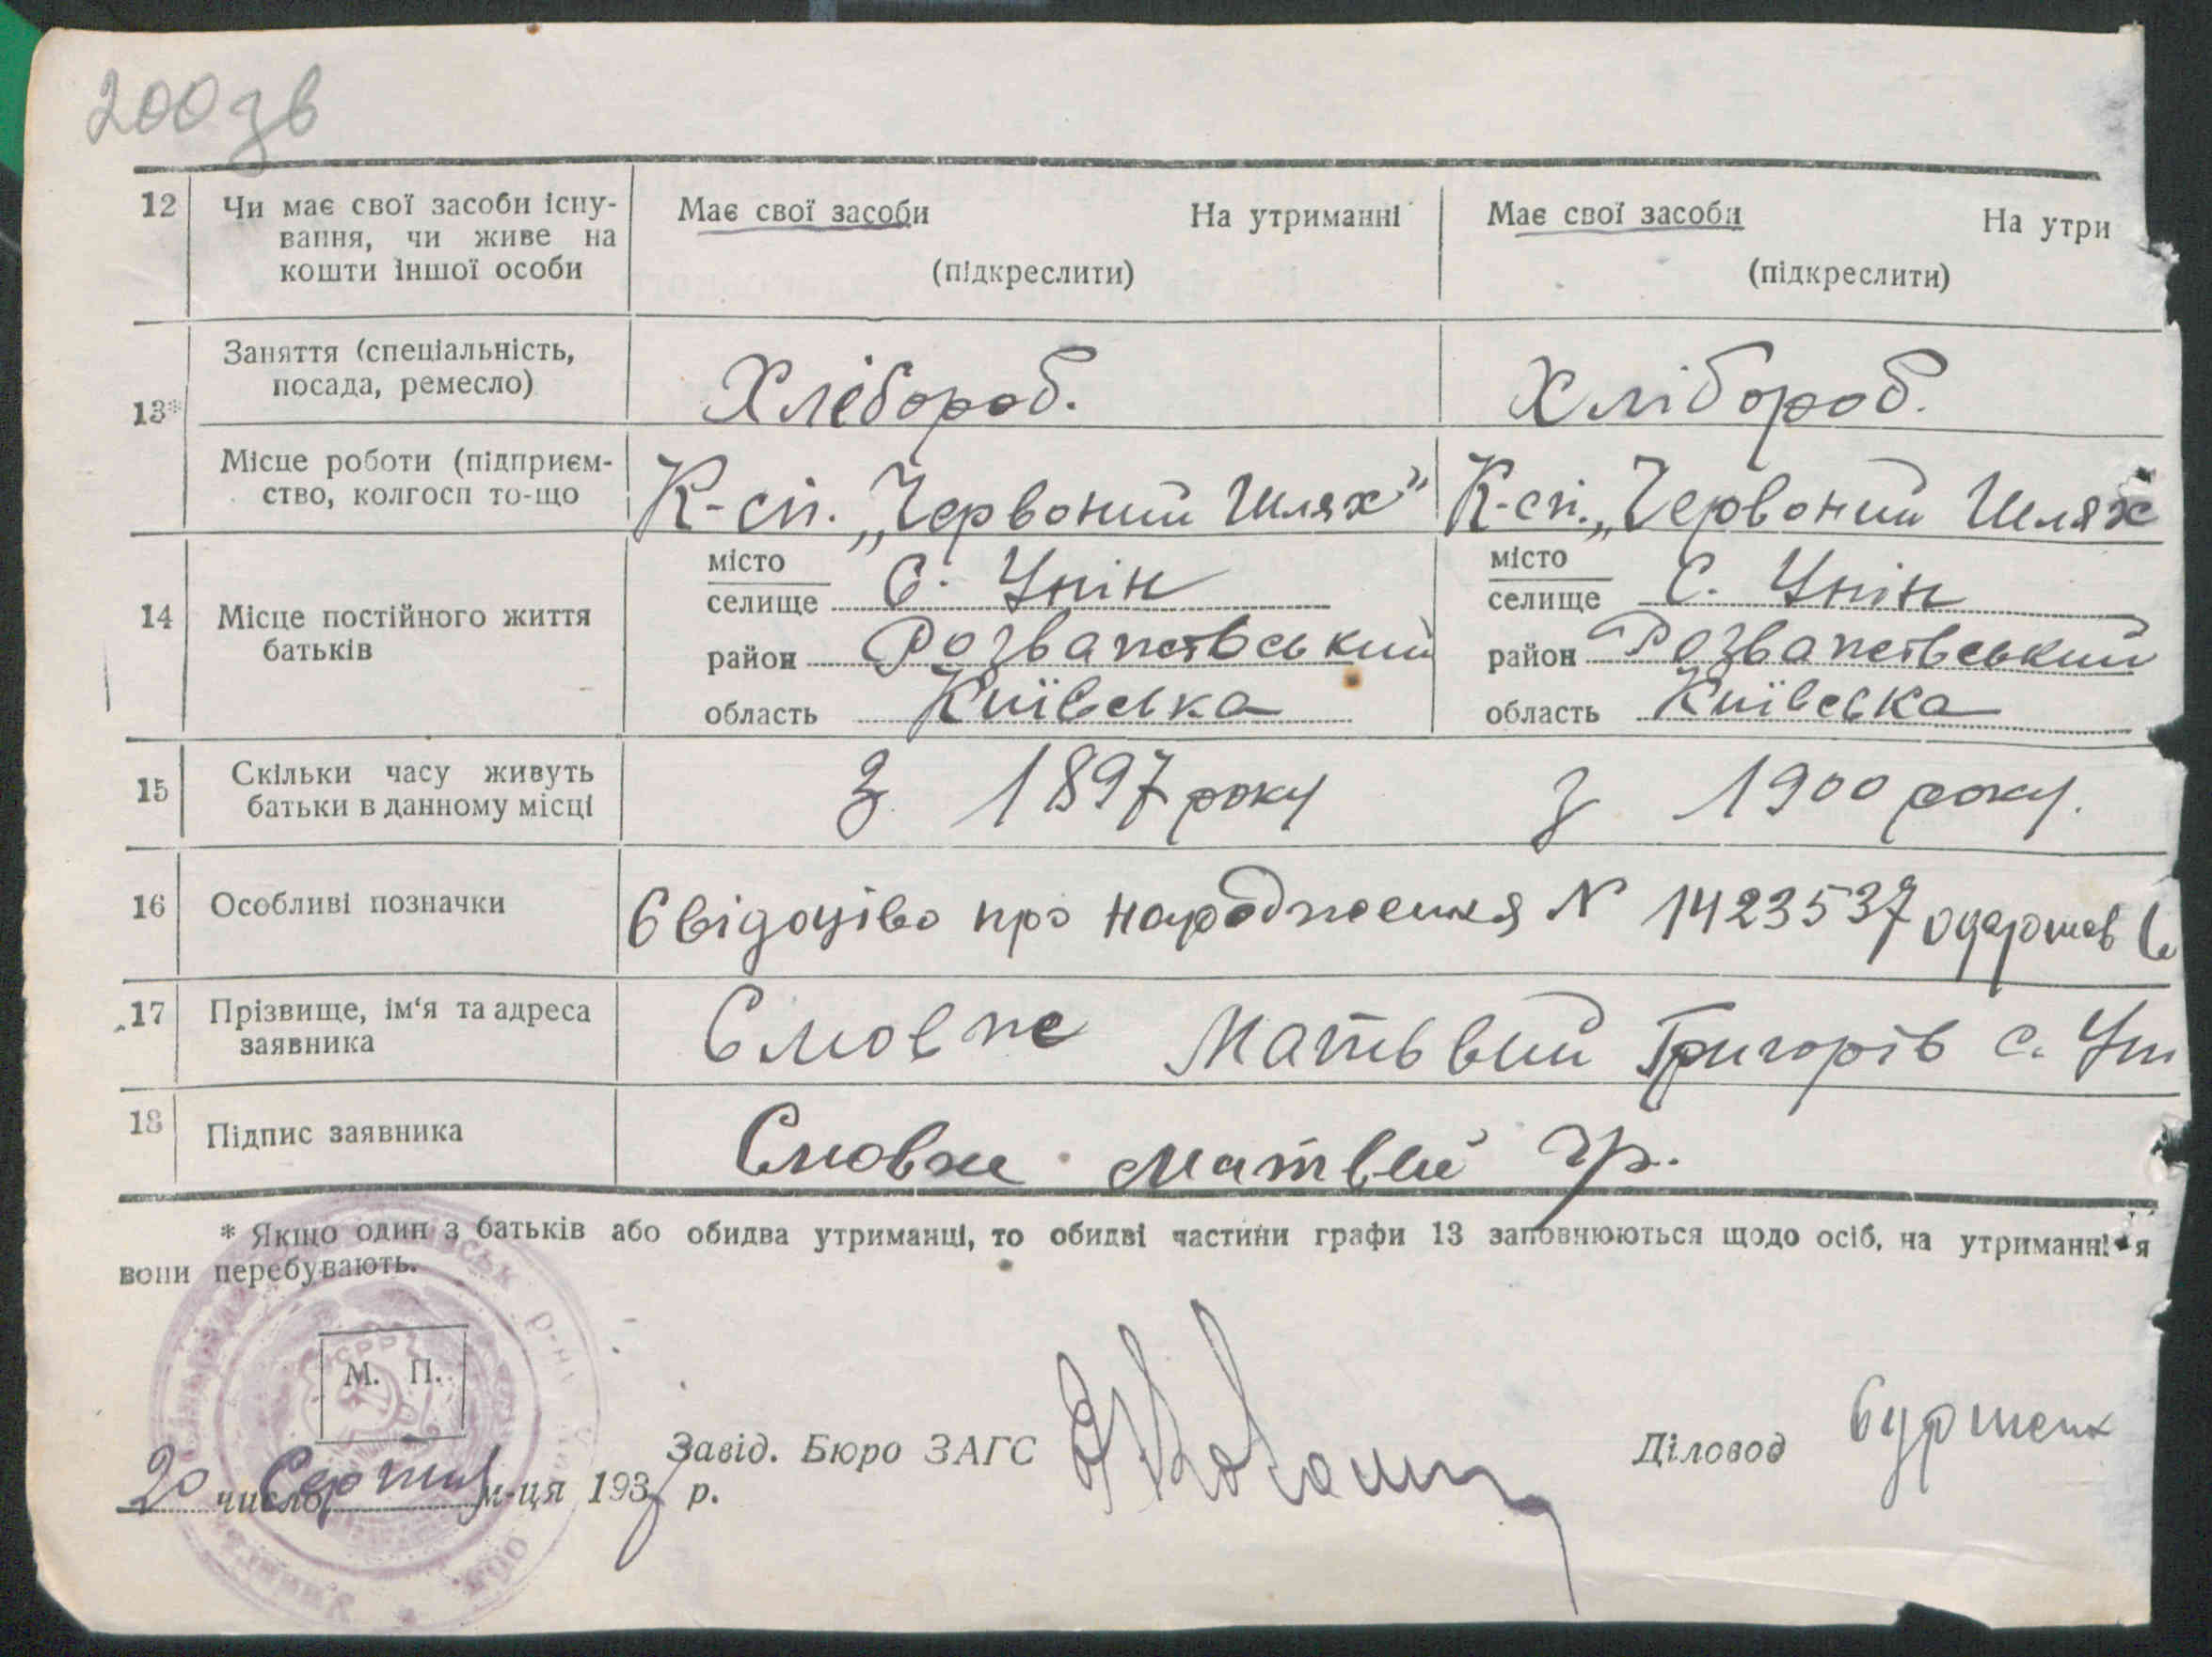 200 зв
12 Чи має свої засоби існу-
вання, чи живе на
кошти іншої особи
Має свої засоби На утриманні
(підкреслити)
Має свої засоби На утри
(підкреслити)
13*
Заняття (спеціальність,
посада, ремесло)
Хлібороб.
Хлібороб.
Місце роботи (підприєм-
ство, колгосп то-що
К-сп. „Червоний Шлях"
К-сп. „Червоний Шлях
14 Місце постійного життя
батьків
місто
селище С. Унін
район Розважівський
область Київська
місто
селище С. Унін
район Розважівський
область Київська
15 Скільки часу живуть
батьки в данному місці
З 1897 року
З 1900 року.
16 Особливі позначки
Свідоцтво про народження № 1423537 одержав
17 Прізвище, ім'я та адреса
заявника
Смовже Матьвий Григорів с. Уні
18 Підпис заявника
Смовже Матвей Гр.
* Якщо один з батьків або обидва утриманці, то обидві частини графи 13 заповнюються щодо осіб, на утриманні я
вони перебувають.
М. П.
20 число Серпня м-ця 1937 р.
Завід. Бюро ЗАГС
Діловод